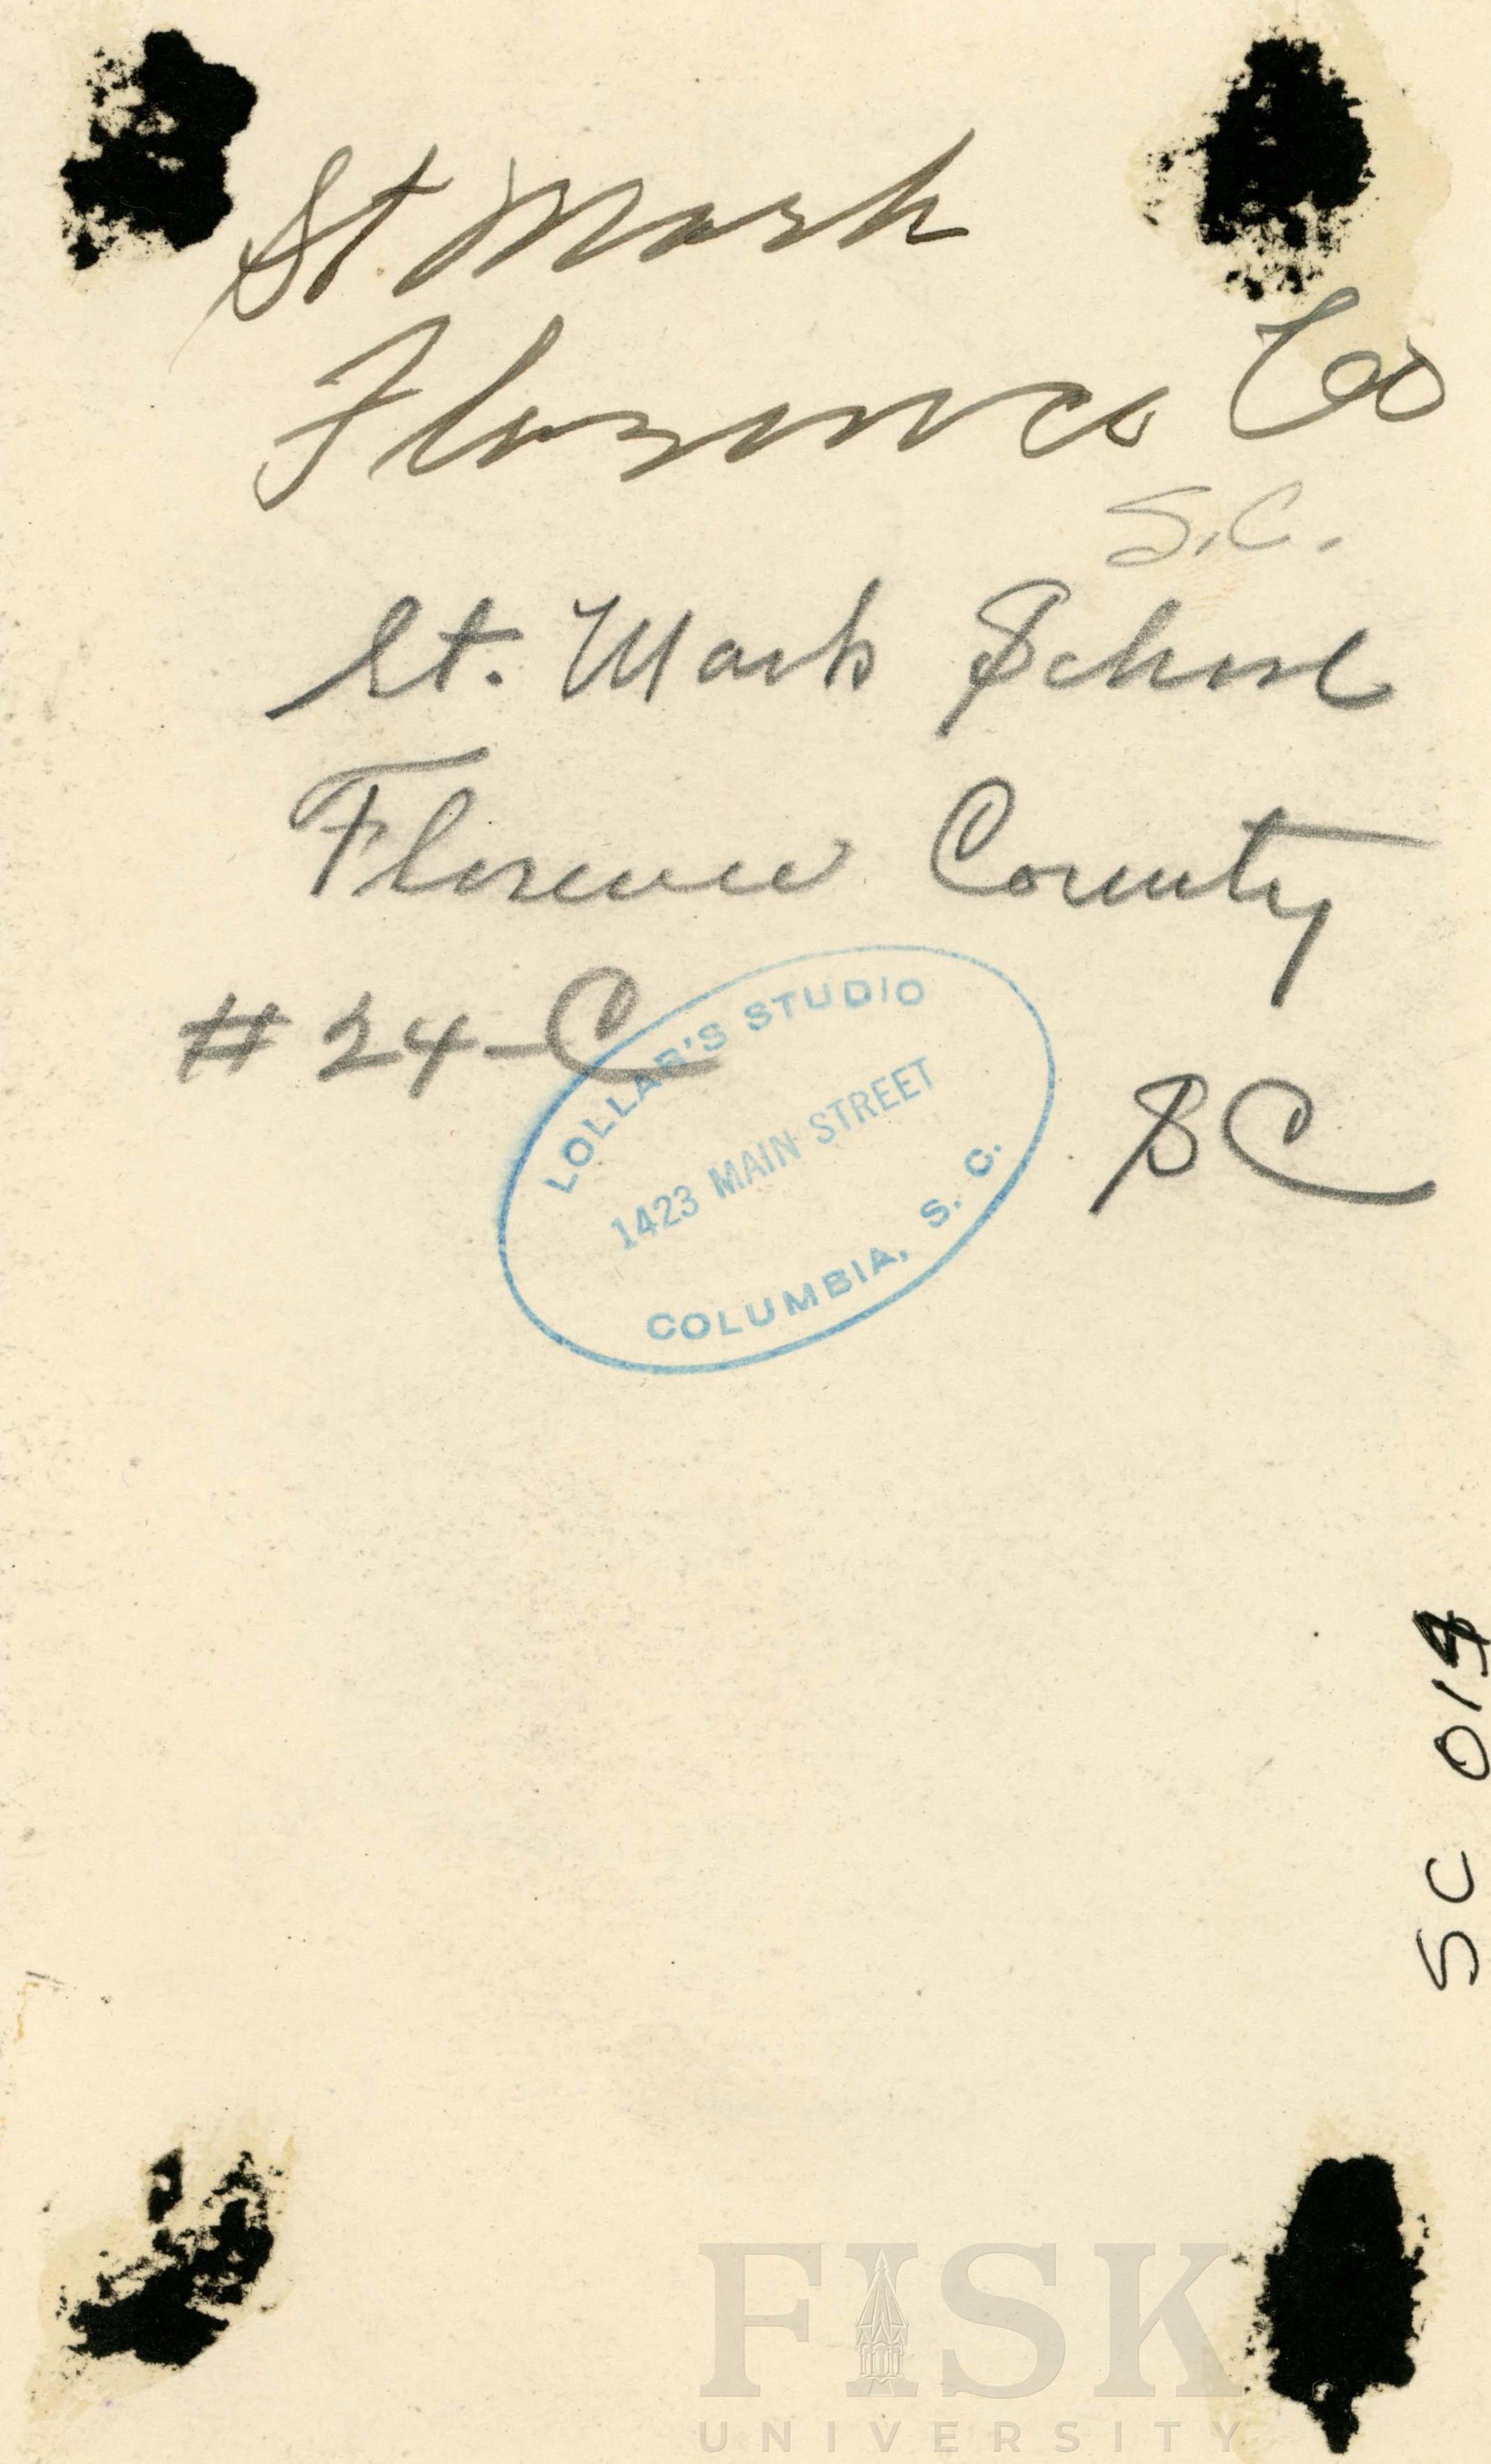 St Mark
Florence Co
S.C.
St. Mark School
Florence County
# 24-C
SC
LOLLAR'S STUDIO
1423 MAIN STREET
COLUMBIA, S. C.
SC 014
FISK
UNIVERSITY